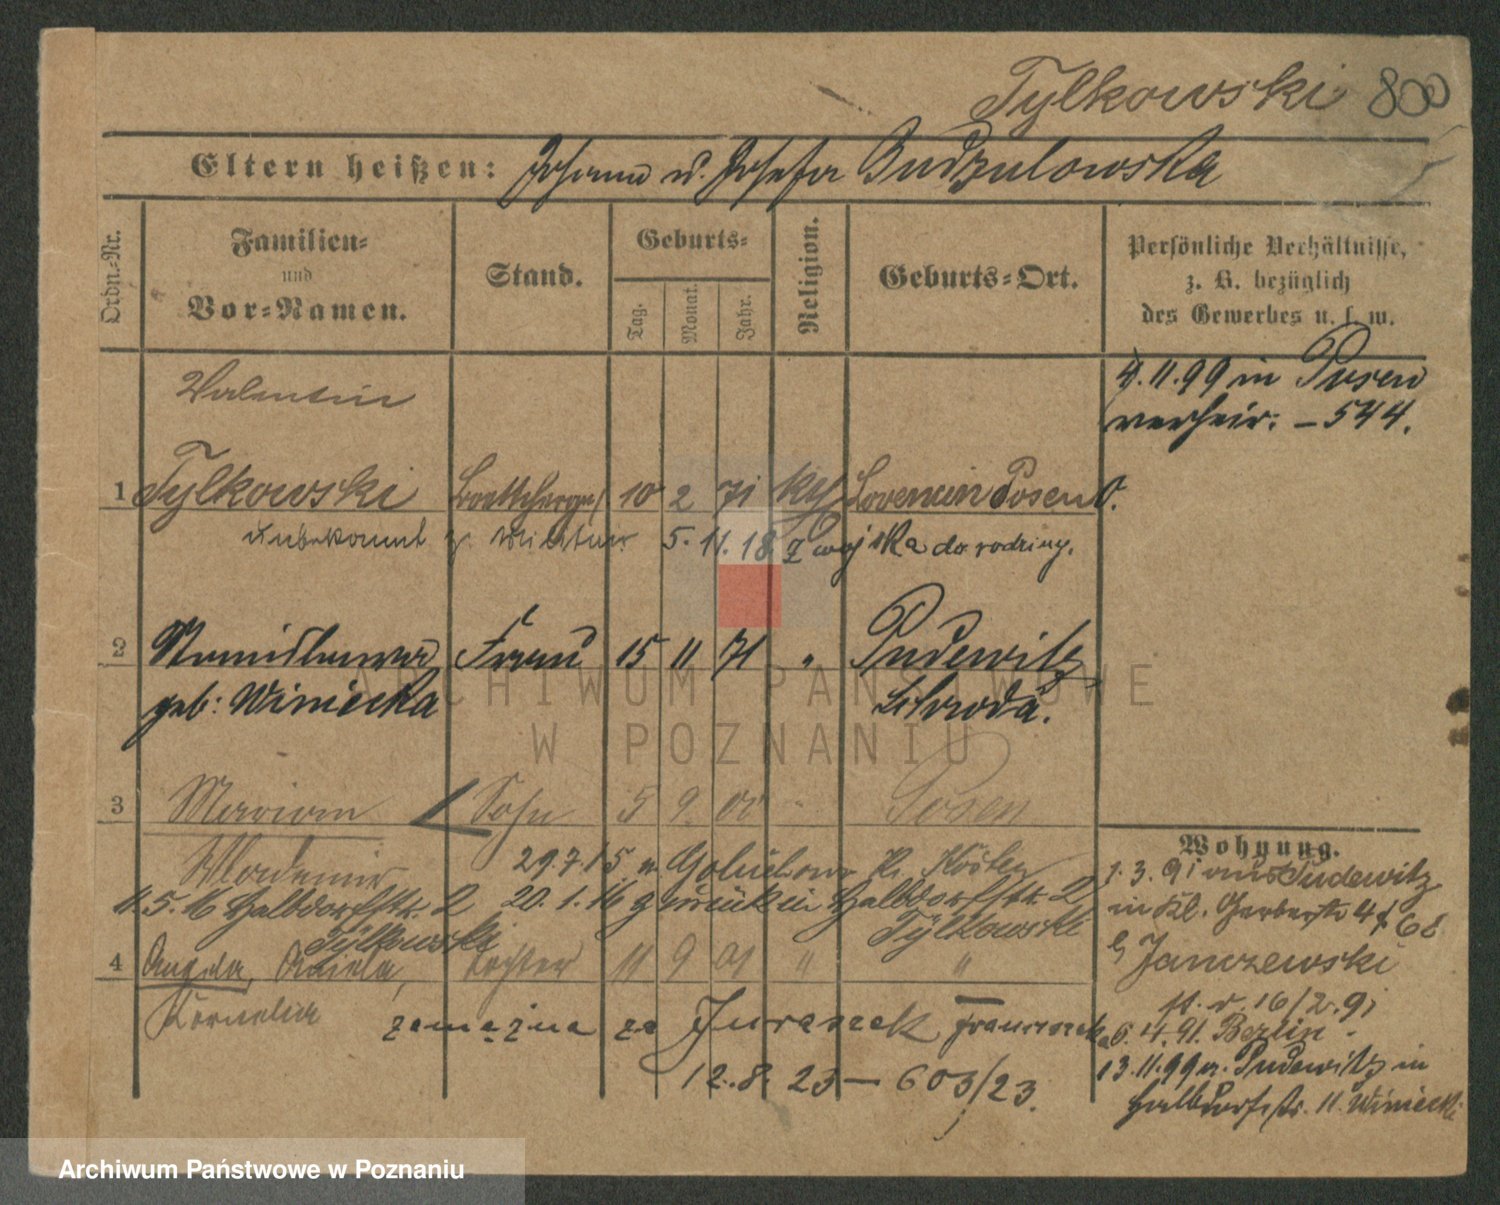 Tylkowski 800
Eltern heißen: Johann u. Josefa Budzulowska
Ordn.-Nr.
Familien-
und
Vor-Namen.
Stand.
Geburts-
Tag.
Monat.
Jahr.
Religion.
Geburts-Ort.
Persönliche Verhältnisse,
z. B. bezüglich
des Gewerbes u. s. w.
Valentin
4.11.99 in Posen
verheir. – 544.
1 Tylkowski Boettcherges. 10 2 71 kth Posen O.
unbekannt z. Militair 5. 11. 18. z wojska do rodziny.
2 Stanislawa Frau 15 11 71 " Pudewitz
geb: Winiecka Schroda.
ARCHIWUM PAŃSTWOWE
W POZNANIU
3 Marian Sohn 5 9. 00 " Posen
Wladimir 29.7.15. n. Goluchowo Kr. Kosten
11.5.16 Halbdorfstr. 2 20.1.16 zurück in Halbdorfstr. 2
Tylkowski Tylkowski
4 Angela, Aniela, Tochter 11 9 01 " "
Kornelia zamężna za Juraszek Franciszka
12. 8. 23 – 603/23.
Wohnung.
1.3.91 aus Pudewitz
in Kl. Gerberstr 4 f 68
b/ Janczewski
16/2.91
6.4.91. Berlin.
13.11.99 a. Pudewitz in
Halbdorfstr. 11. Winiecki
Archiwum Państwowe w Poznaniu